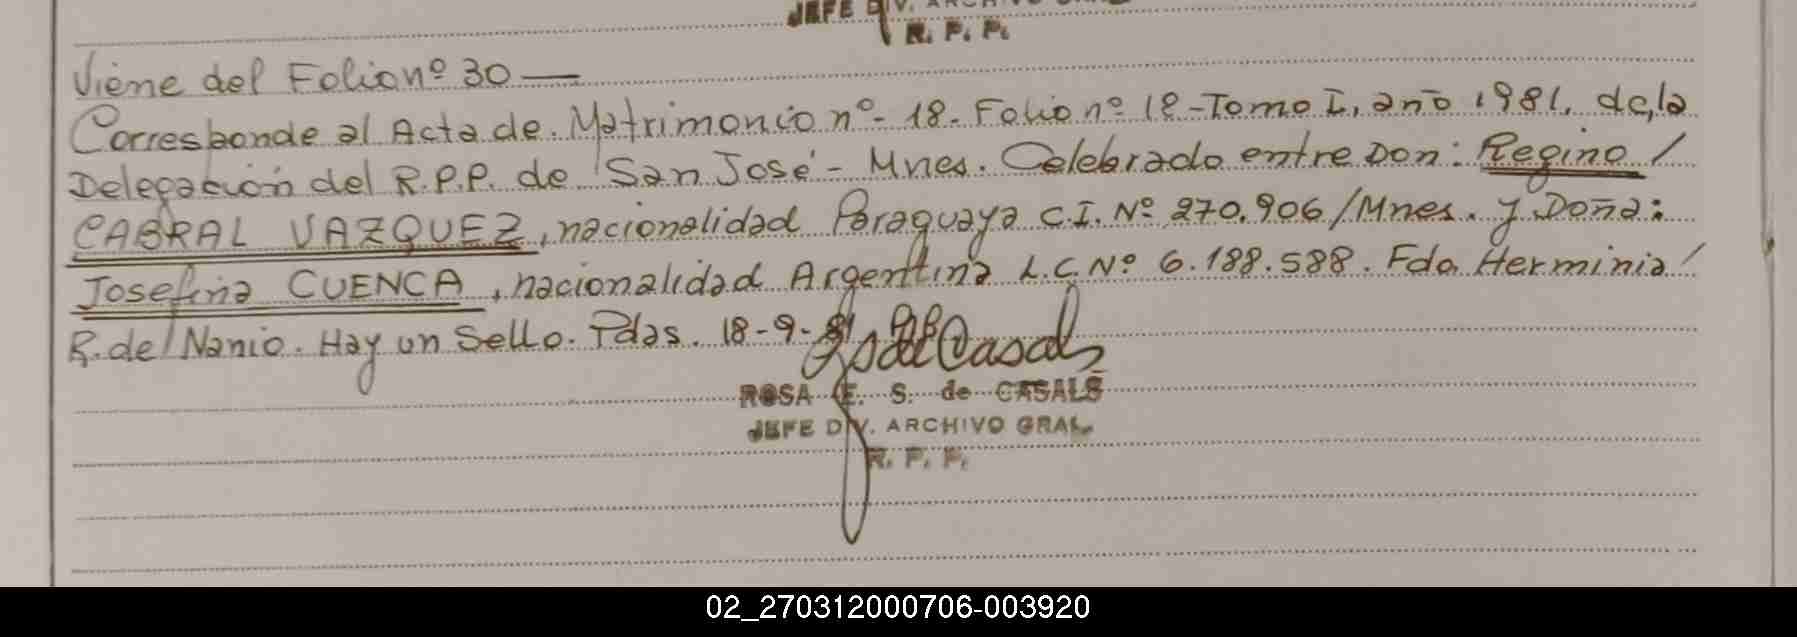 JEFE DIV. ARCHIVO GRAL.
R. P. P.
Viene del Folio nº 30 —
Corresponde al Acta de Matrimonio nº- 18. Folio nº 18-Tomo I, año 1981, de la
Delegación del R.P.P. de San José - Mnes. Celebrado entre Don: Regino /
CABRAL VAZQUEZ, nacionalidad Paraguaya C.I. Nº 270.906/Mnes. y Doña:
Josefina CUENCA, nacionalidad Argentina L.C. Nº 6.188.588. Fdo. Herminia/
R. de Nanio. Hay un Sello. Pdas. 18-9-81
ROSA E. S. de CASALS
JEFE DIV. ARCHIVO GRAL.
R. P. P.
02_270312000706-003920